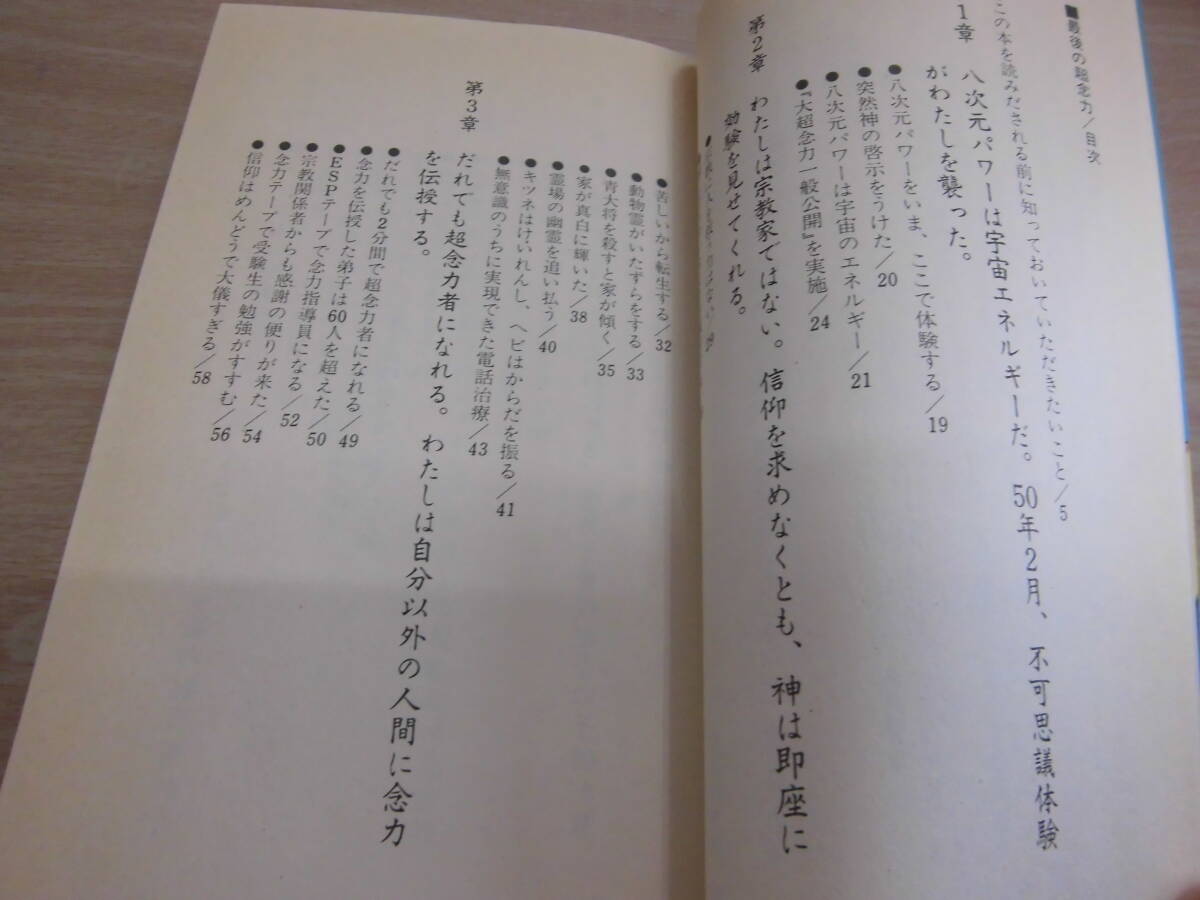 ■最後の超念力／目次
この本を読みだされる前に知っておいていただきたいこと／5
1章 八次元パワーは宇宙エネルギーだ。50年2月、不可思議体験
がわたしを襲った。
●八次元パワーをいま、ここで体験する／19
●突然神の啓示をうけた／20
●八次元パワーは宇宙のエネルギー／21
●『大超念力一般公開』を実施／24
第2章 わたしは宗教家ではない。信仰を求めなくとも、神は即座に
効験を見せてくれる。
●苦しいから転生する／32
●動物霊がいたずらをする／33
●青大将を殺すと家が傾く／35
●家が真白に輝いた／38
●霊場の幽霊を追い払う／40
●キツネはけいれんし、ヘビはからだを振る／41
●無意識のうちに実現できた電話治療／43
第3章 だれでも超念力者になれる。わたしは自分以外の人間に念力
を伝授する。
●だれでも2分間で超念力者になれる／49
●念力を伝授した弟子は60人を超えた／50
●ESPテープで念力指導員になる／52
●宗教関係者からも感謝の便りが来た／54
●念力テープで受験生の勉強がすすむ／56
●信仰はめんどうで大儀すぎる／58